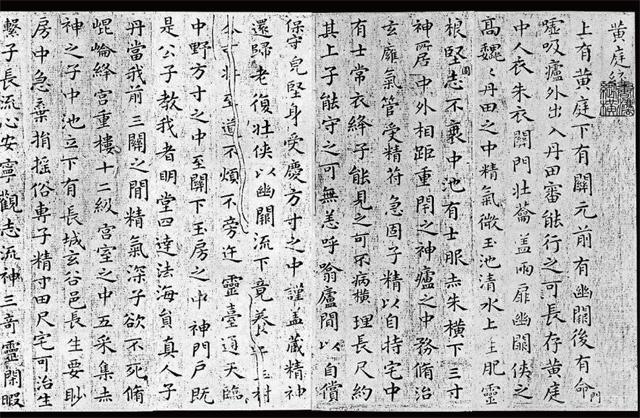 黃庭經
上有黃庭下有關元前有幽關後有命門
噓吸廬外出入丹田審能行之可長存黃庭
中人衣朱衣關門壯蘥蓋兩扉幽關俠之
高巍〻丹田之中精氣微玉池清水上生肥靈
根堅志不衰中池有士服赤朱橫下三寸
神所居中外相距重閉之神廬之中務脩治
玄廱氣管受精符急固子精以自持宅中
有士常衣絳子能見之可不病橫理長尺約
其上子能守之可無恙呼翕廬間以自償
保守完堅身受慶方寸之中謹蓋藏精神
還歸老復壯俠以幽關流下竟養子玉村
壯至道不煩不旁迕靈臺通天臨
中野方寸之中至關下玉房之中神門戶既
是公子教我者明堂四達法海員真人子
丹當我前三關之間精氣深子欲不死脩
崐崘絳宮重樓十二級宮室之中五采集赤
神之子中池立下有長城玄谷邑長生要眇
房中急棄捐搖俗專子精寸田尺宅可治生
繫子長流心安寧觀志流神三奇靈閑暇